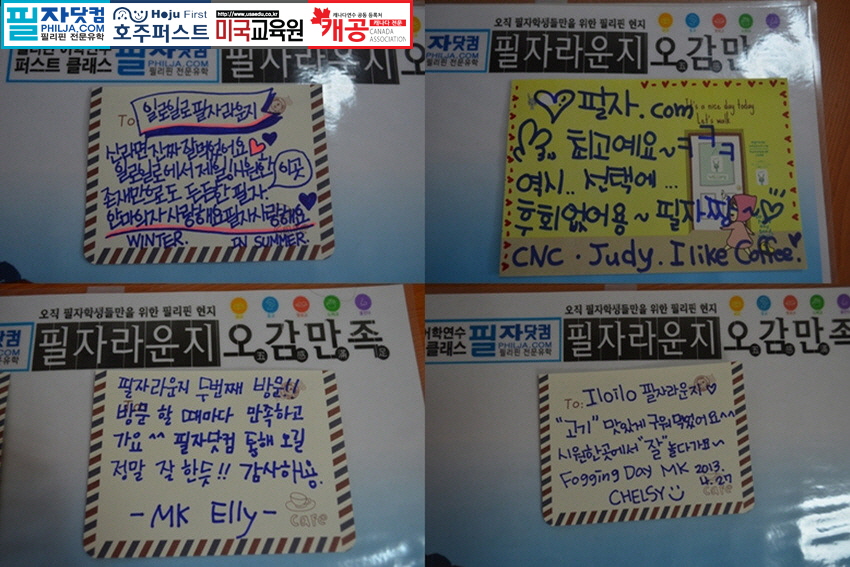 필자닷컴
PHILJA.COM
필리핀 전문유학
Hoju First
호주퍼스트
http://www.usaedu.co.kr
미국교육원
캐나다연수 공동 등록처
캐공
캐나다 전문
CANADA
ASSOCIATION
퍼스트 클래스
필자닷컴
PHILJA.COM
필리핀 전문유학
필자라운지 오
To 일로일로 필자라운지
신라면 진짜 잘 먹었어요
일로일로에서 제일 시원한 이곳
존재만으로도 든든한 필자.
안마의자 사랑해요 필자 사랑해요
WINTER. IN SUMMER.
오직 필자학생들만을 위한 필리핀 현지
자닷컴
PHILJA.COM
필리핀 전문유학
필자라운지 오감만족
It's a nice day today
Let's walk
필자.com
최고예요~ㅋㅋㅋ
역시.. 선택에...
후회없어용~ 필자짱~
CNC. Judy. I like Coffee.
오직 필자학생들만을 위한 필리핀 현지
닷컴
JA.COM
전문유학
필자라운지 오감만족
필자라운지 두번째 방문!!
방문 할 때마다 만족하고
가요^^ 필자닷컴 통해 오길
정말 잘한듯!! 감사해용.
- MK Elly -
cafe
오직 필자학생들만을 위한 필리핀 현지
어학연수
클래스
필자닷컴
PHILJA.COM
필리핀 전문유학
필자라운지 오감만족
To: Iloilo 필자라운지♡
"고기" 맛있게 구워먹었어요^^
시원한곳에서 "잘" 놀다가요~
Fogging Day MK 2013.
4.27
CHELSY
cafe